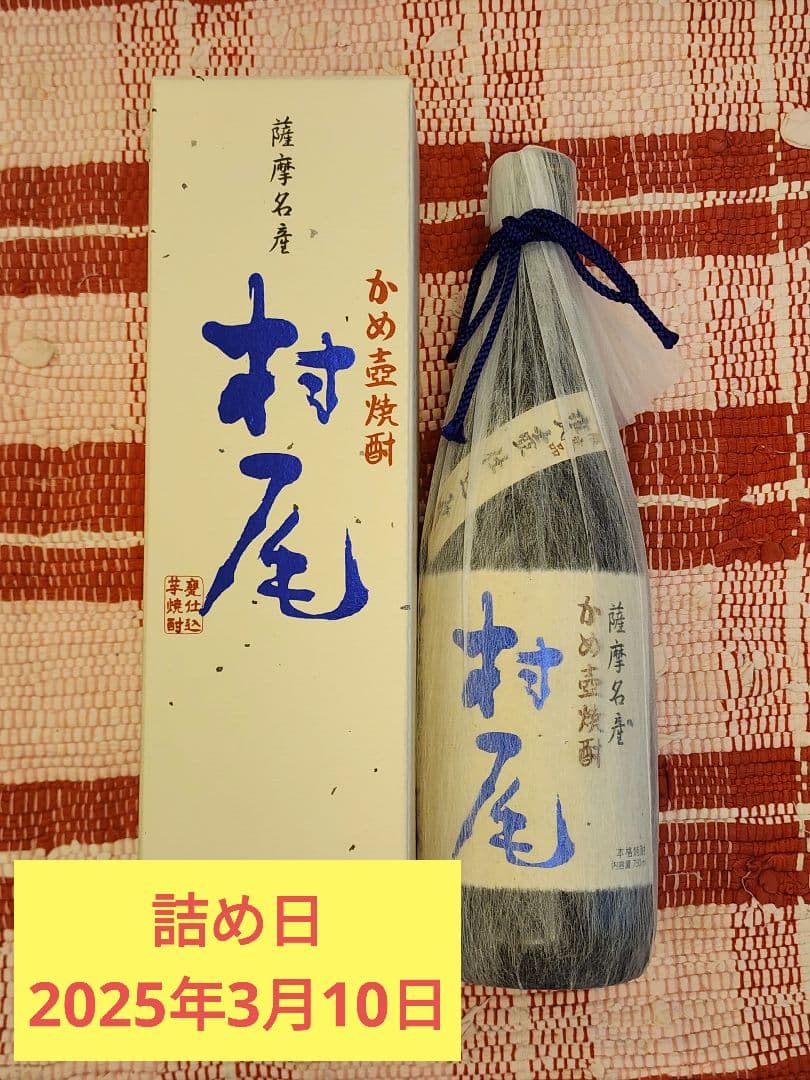 薩摩名産
かめ壺焼酎
村尾
甕仕込
芋焼酎
薩摩名産
かめ壺焼酎
村尾
本格焼酎
内容量.750ml
詰め日
2025年3月10日